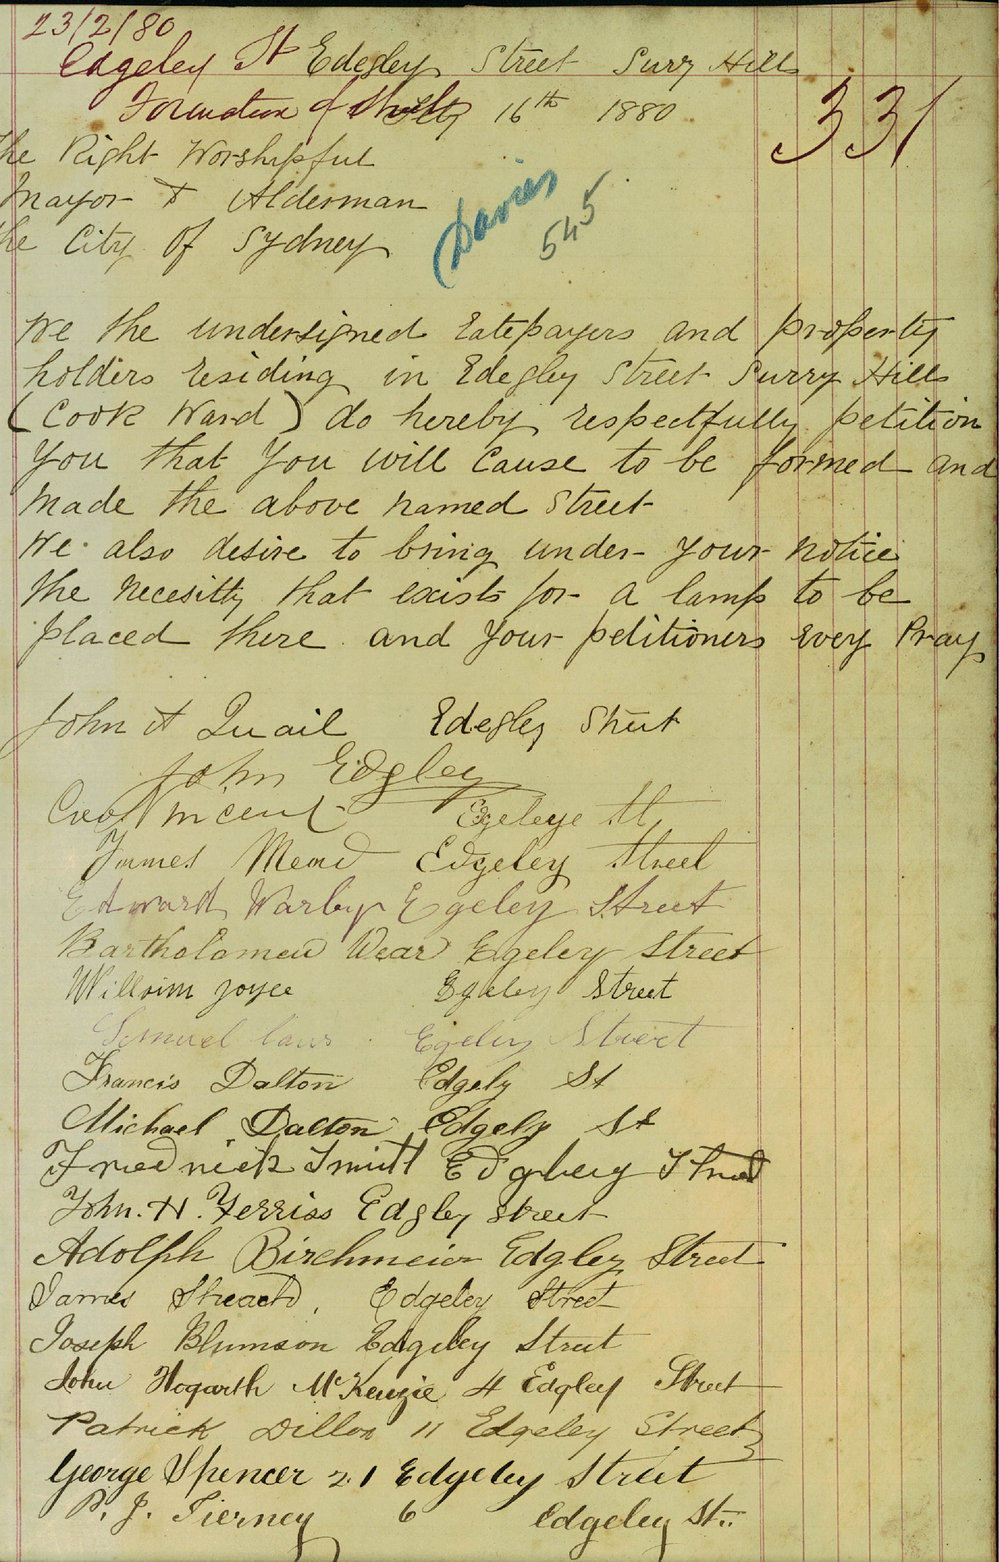 23/2/80
Edgeley St Edegley Street Surry Hills
Formation of Street
16th 1880
331
The Right Worshipful
Mayor & Alderman
the City of Sydney
Davies
545
We the undersigned Ratepayers and property
holders residing in Edegley Street Surry Hills
(Cook Ward) do hereby respectfully petition
You that You will Cause to be formed and
Made the above named Street
We also desire to bring under your notice
the necesitty that exists for a lamp to be
placed there and your petitioners Every Pray
John A Quail Edegley Street
John Edgley
Geo Vincent Egeleye St
James Mead Edgeley Street
Edward Warby Egeley Street
Bartholomew Wear Egeley Street
William Joyce Egeley Street
Samuel Egeley Street
Francis Dalton Edgely St
Michael Dalton Edgely St
Friedrick Smitt Edgbey Street
John. H. Ferriss Edgley Street
Adolph Birchmeier Edgley Street
James Edgeley Street
Joseph Blumson Edgeley Street
John Hogarth McKenzie 4 Edgley Street
Patrick Dillon 11 Edgeley Street
George Spencer 21 Edgeley Street
P. J. Tierney 6 Edgeley St..